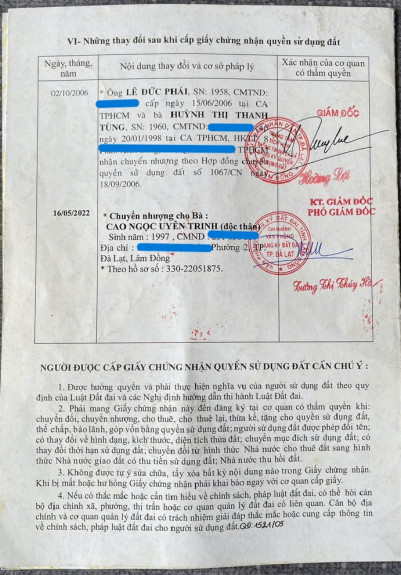 VI- Những thay đổi sau khi cấp giấy chứng nhận quyền sử dụng đất
Ngày, tháng, năm
Nội dung thay đổi và cơ sở pháp lý
Xác nhận của cơ quan có thẩm quyền
02/10/2006
* Ông LÊ ĐỨC PHÁI, SN: 1958, CMTND:
cấp ngày 15/06/2006 tại CA
TPHCM và bà HUỲNH THỊ THANH
TÙNG, SN: 1960, CMTND:
ngày 20/01/1998 tại CA TPHCM, HKTT:
nhận chuyển nhượng theo Hợp đồng chuyển
quyền sử dụng đất số 1067/CN ngày
18/09/2006.
GIÁM ĐỐC
16/05/2022
* Chuyển nhượng cho Bà :
CAO NGỌC UYÊN TRINH (độc thân)
Sinh năm : 1997 , CMND
Địa chỉ : Phường 2, TP.
Đà Lạt, Lâm Đồng
* Theo hồ sơ số : 330-22051875.
KT. GIÁM ĐỐC
PHÓ GIÁM ĐỐC
CHI NHÁNH
TP. ĐÀ LẠT
NGƯỜI ĐƯỢC CẤP GIẤY CHỨNG NHẬN QUYỀN SỬ DỤNG ĐẤT CẦN CHÚ Ý :
1. Được hưởng quyền và phải thực hiện nghĩa vụ của người sử dụng đất theo quy
định của Luật Đất đai và các Nghị định hướng dẫn thi hành Luật Đất đai.
2. Phải mang Giấy chứng nhận này đến đăng ký tại cơ quan có thẩm quyền khi:
chuyển đổi, chuyển nhượng, cho thuê, cho thuê lại, thừa kế, tặng cho quyền sử dụng đất,
thế chấp, bảo lãnh, góp vốn bằng quyền sử dụng đất; người sử dụng đất được phép đổi tên;
có thay đổi về hình dạng, kích thước, diện tích thửa đất; chuyển mục đích sử dụng đất; có
thay đổi thời hạn sử dụng đất; chuyển đổi từ hình thức Nhà nước cho thuê đất sang hình
thức Nhà nước giao đất có thu tiền sử dụng đất; Nhà nước thu hồi đất.
3. Không được tự sửa chữa, tẩy xóa bất kỳ nội dung nào trong Giấy chứng nhận.
Khi bị mất hoặc hư hỏng Giấy chứng nhận phải khai báo ngay với cơ quan cấp giấy.
4. Nếu có thắc mắc hoặc cần tìm hiểu về chính sách, pháp luật đất đai, có thể hỏi cán
bộ địa chính xã, phường, thị trấn hoặc cơ quan quản lý đất đai có liên quan. Cán bộ địa
chính và cơ quan quản lý đất đai có trách nhiệm giải đáp thắc mắc hoặc cung cấp thông tin
về chính sách, pháp luật đất đai cho người sử dụng đất. QĐ: 1521/05